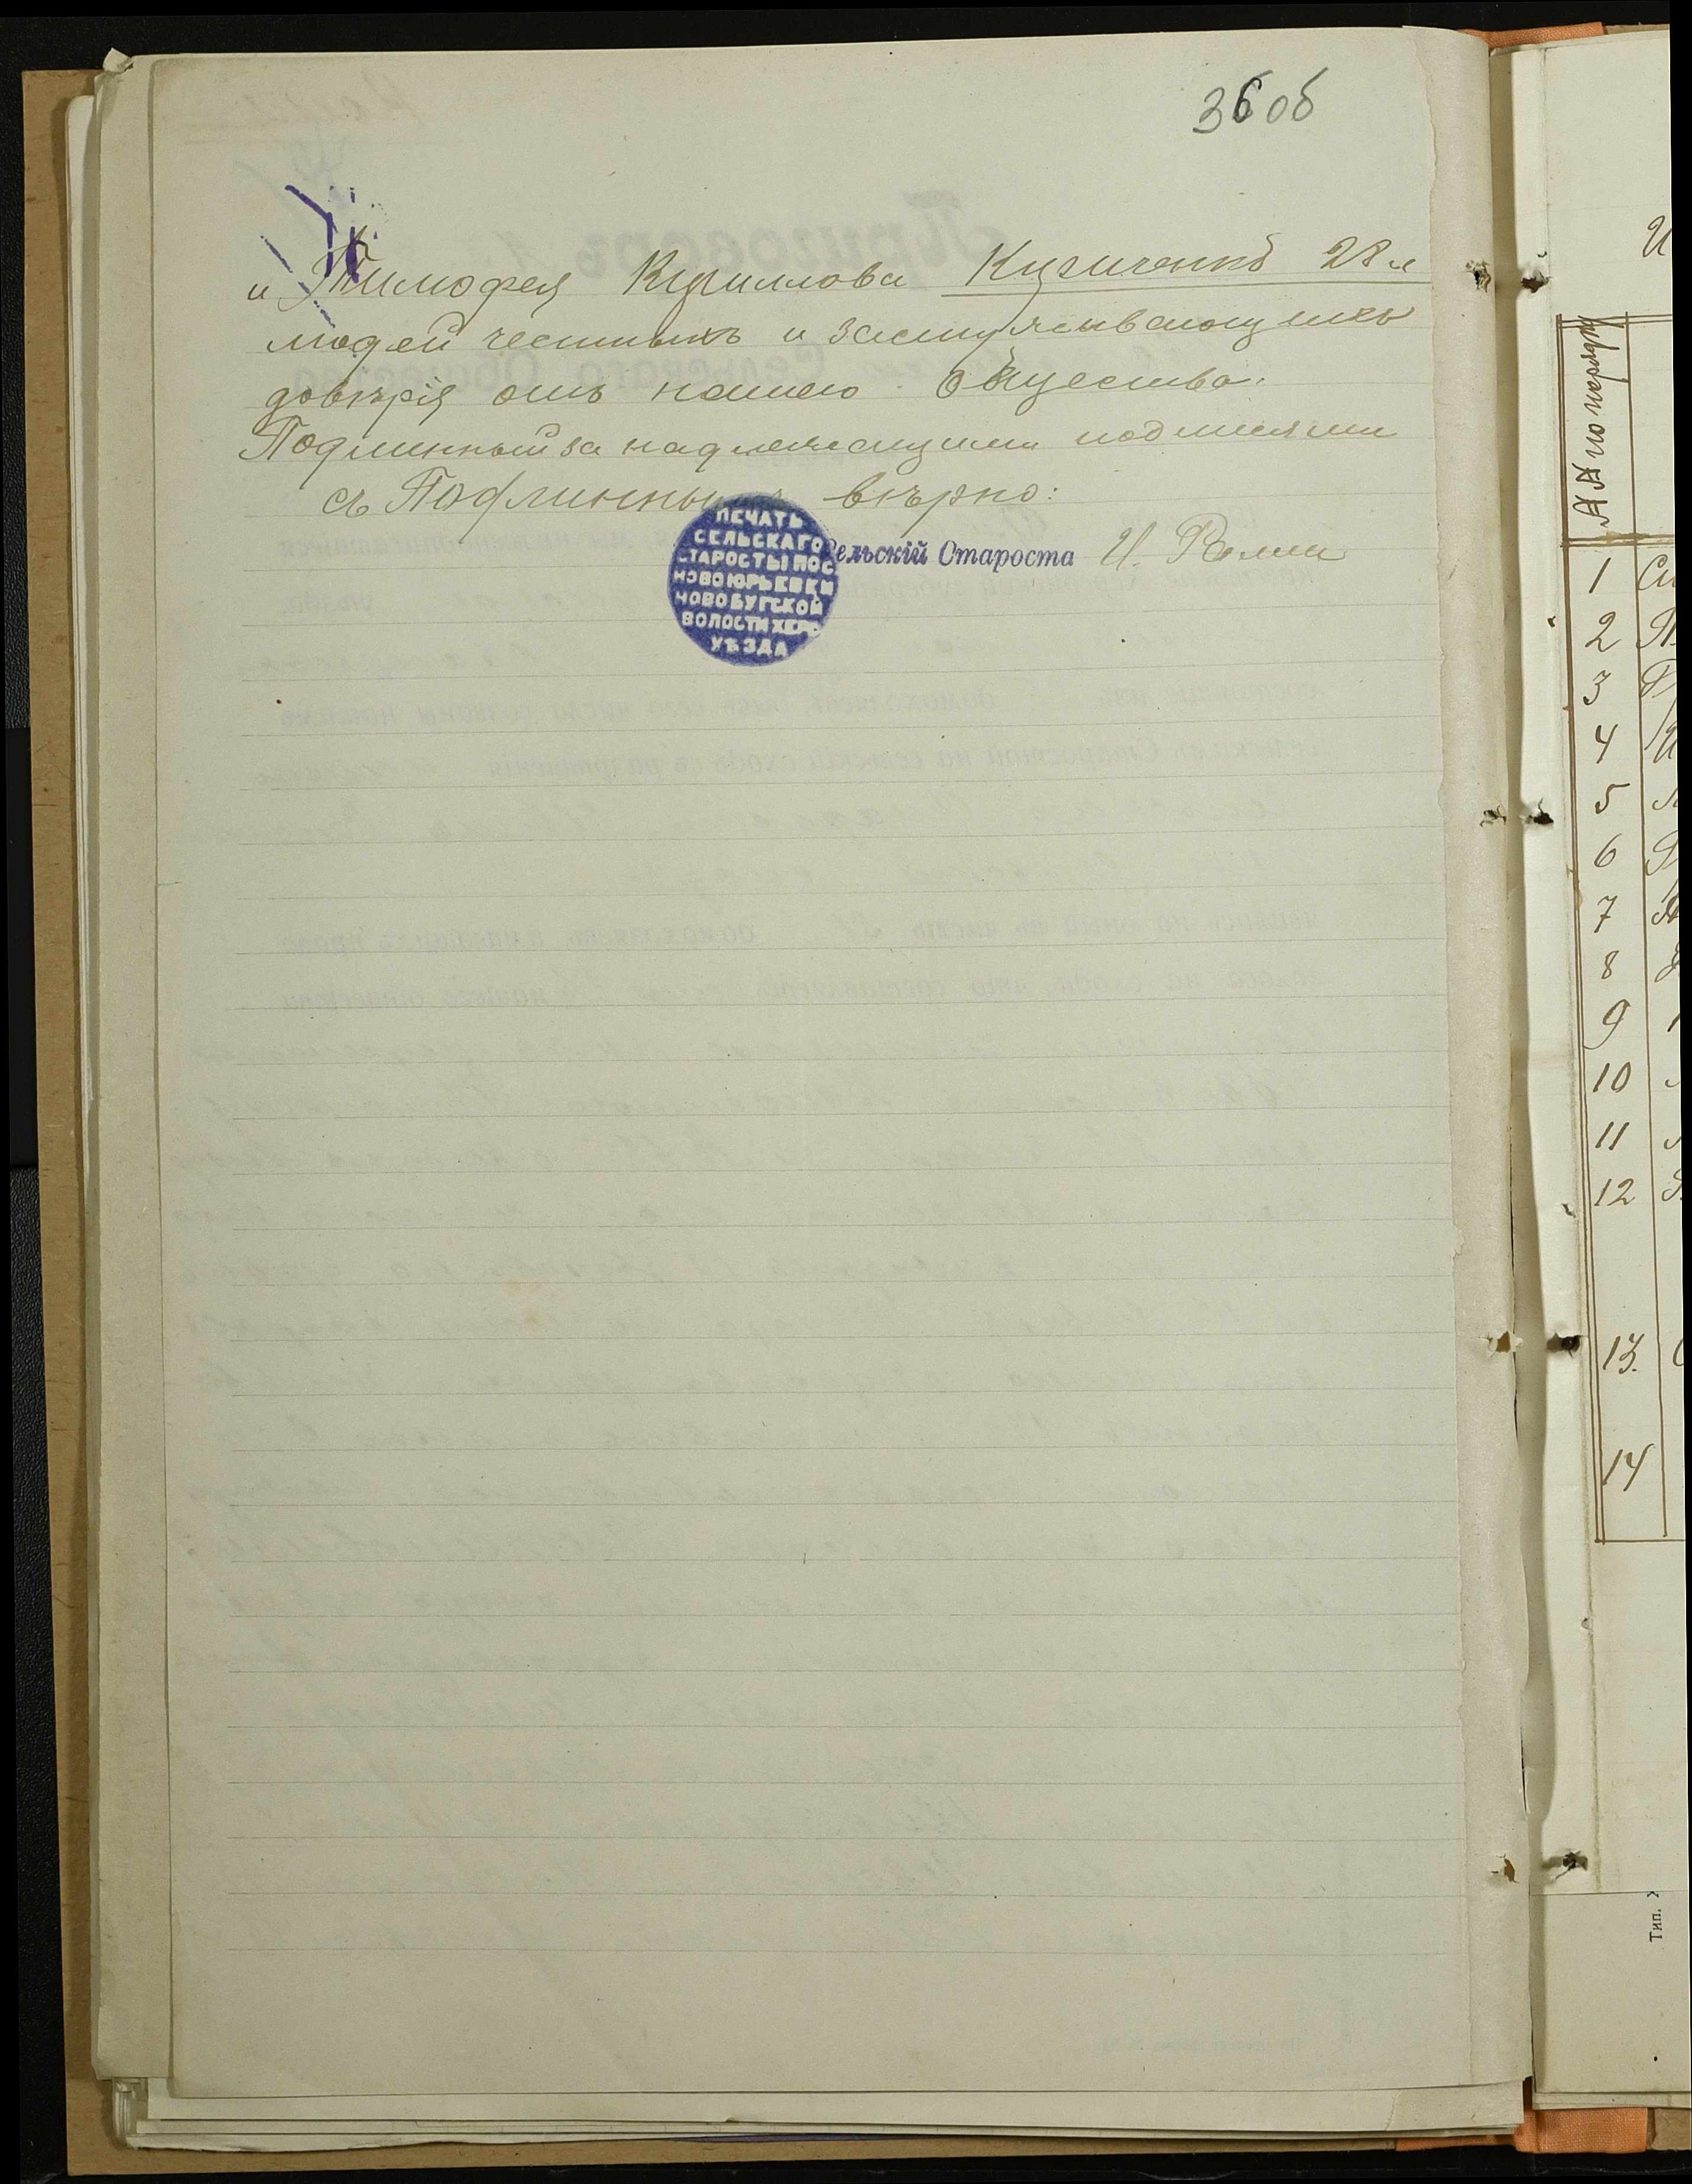 36 об
и Тимофея Кириллова Кучиченко 28 л
людей честныхъ и заслуживающихъ
довѣрія отъ нашего Общества.
Подлинный за надлежащими подписями
съ Подлиннымъ вѣрно:
ПЕЧАТЬ
СЕЛЬСКАГО
СТАРОСТЫ ПОС
НОВОЮРЬЕВКИ
НОВОБУГСКОЙ
ВОЛОСТИ ХЕРС
УѢЗДА
Сельскій Староста И.
№№ по порядку
1
2
3
4
5
6
7
8
9
10
11
12
13.
14
Тип.